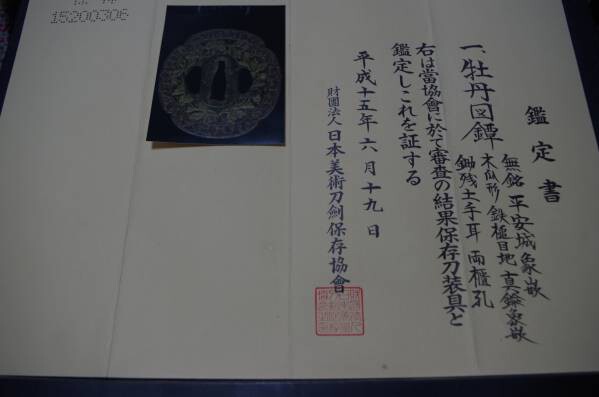 鑑定書
一、牡丹図鐔
無銘 平安城象嵌
木瓜形 鉄槌目地 真鍮象嵌
鋤残土手耳 両櫃孔
右は當協會に於て審査の結果保存刀装具と
鑑定しこれを証する
平成十五年六月十九日
財團法人日本美術刀剣保存協會
15200306